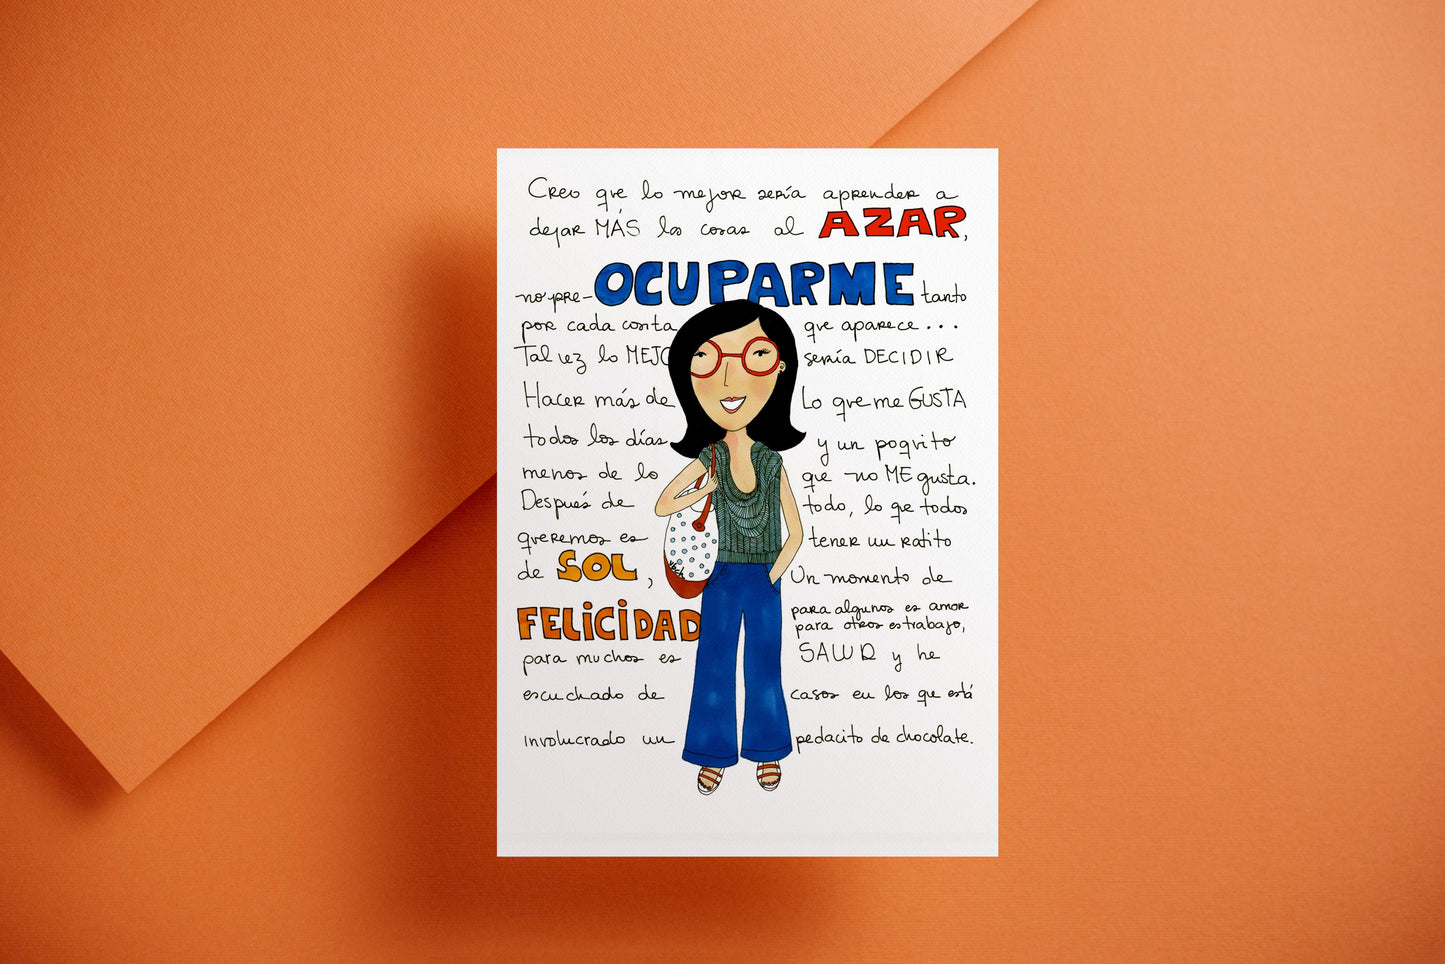 Creo que lo mejor sería aprender a
dejar MÁS las cosas al AZAR,
no pre-OCUPARME tanto
por cada cosita que aparece...
Tal vez lo MEJO sería DECIDIR
Hacer más de Lo que me GUSTA
todos los días y un poquito
menos de lo que no ME gusta.
Después de todo, lo qe todos
queremos es tener un ratito
de SOL, Un momento de
FELICIDAD para algunos es amor
para otros es trabajo,
para muchos es SALUD y he
escuchado de casos en los que está
involucrado un pedacito de chocolate.